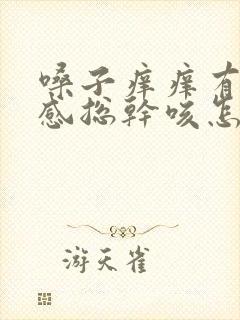 嗓子痒痒有
感总幹咳怎
游天雀